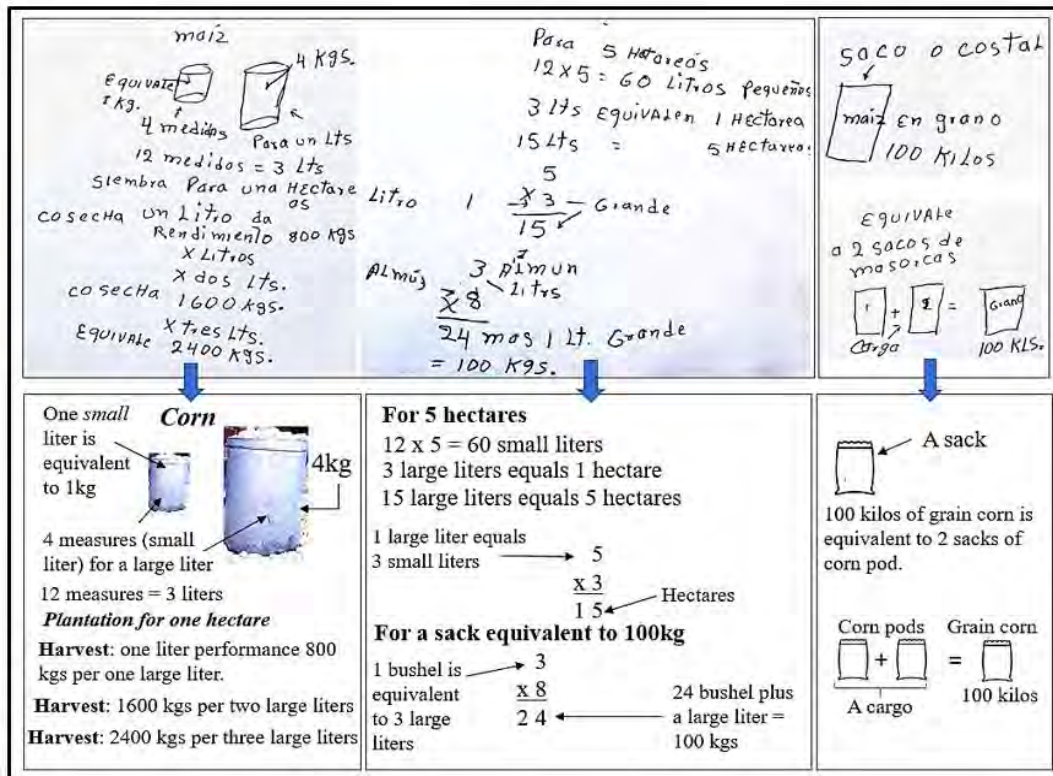 maiz
4 Kgs.
EQUIVALE
1 Kg.
4 medidas
Para un Lts
12 medidos = 3 Lts
Siembra Para una HEctare
as
cosecHa un Litro da
Rendimiento 800 Kgs
X Litros
X dos Lts.
cosecHa 1600 Kgs.
X tres Lts.
EQUIVALE 2400 Kgs.
Para 5 Hetareás
12 x 5 = 60 Litros Pequeños
3 Lts EquivALen 1 HEctarea
15 Lts = 5 HEctareas.
5
Litro 1 x 3 — Grande
15
3 ALmun
ALmúj Litrs
x 8
24 mas 1 Lt. Grande
= 100 Kgs.
saco o costal
maiz En grano
100 KiLos
EQUIVALE
a 2 sacos de
masorcas
1 + 2 = Grano
Carga 100 KLS.
Corn
One small
liter is
equivalent
to 1kg
4kg
4 measures (small
liter) for a large liter
12 measures = 3 liters
Plantation for one hectare
Harvest: one liter performance 800
kgs per one large liter.
Harvest: 1600 kgs per two large liters
Harvest: 2400 kgs per three large liters
For 5 hectares
12 x 5 = 60 small liters
3 large liters equals 1 hectare
15 large liters equals 5 hectares
1 large liter equals
3 small liters
5
x 3
1 5
Hectares
For a sack equivalent to 100kg
1 bushel is
equivalent
to 3 large
liters
3
x 8
2 4
24 bushel plus
a large liter =
100 kgs
A sack
100 kilos of grain corn is
equivalent to 2 sacks of
corn pod.
Corn pods Grain corn
+ =
A cargo 100 kilos